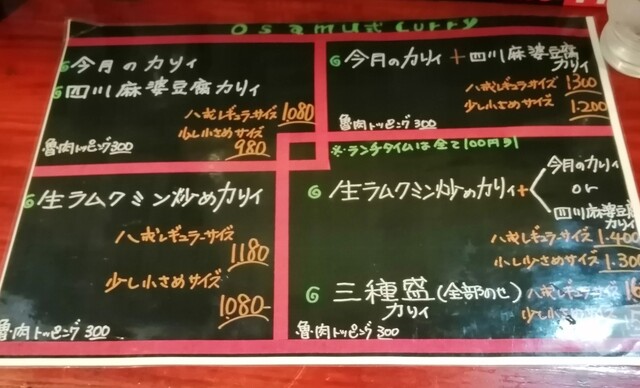 Osamu式 Curry
今月のカリィ
四川麻婆豆腐カリィ
八戒レギュラーサイズ 1080
少し小さめサイズ
980
魯肉トッピング300
今月のカリィ+四川麻婆豆腐
カリィ
八戒レギュラーサイズ 1300
少し小さめサイズ 1.200
魯肉トッピング300
※ランチタイムは全て100円引
生ラムクミン炒めカリィ
八戒レギュラーサイズ
1180
少し小さめサイズ
1080-
魯肉トッピング300
生ラムクミン炒めカリィ+
今月のカリィ
or
四川麻婆豆腐
カリィ
八戒レギュラーサイズ 1.400
少し小さめサイズ 1.300
三種盛(全部のせ)
カリィ
八戒レギュラーサイズ
少し小さめサイズ
魯肉トッピング300